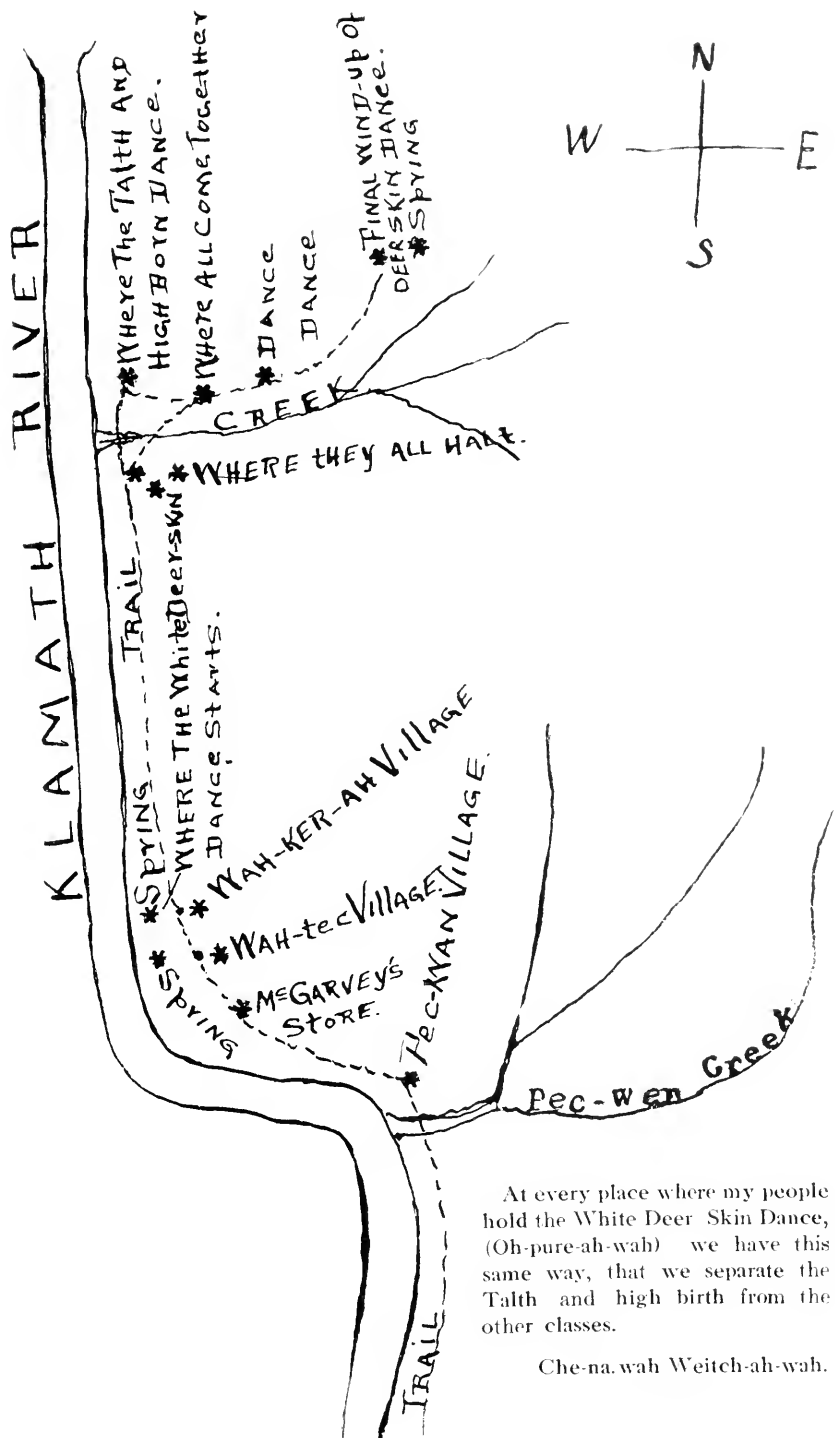 N
W E
S
KLAMATH RIVER
WHERE THE TALTH AND
HIGH BORN DANCE.
WHERE ALL COME TOGETHER
DANCE
DANCE
FINAL WIND-UP OF
DEERSKIN DANCE.
SPRING
CREEK
WHERE THEY ALL HALT.
TRAIL
SPRING
WHERE THE WHITE DEER-SKIN
DANCE STARTS.
WAH-KER-AH VILLAGE
WAH-TEC VILLAGE.
McGARVEY'S
STORE.
SPRING
PEC-WAN VILLAGE.
Pec-wen Creek
TRAIL
At every place where my people
hold the White Deer Skin Dance,
(Oh-pure-ah-wah) we have this
same way, that we separate the
Talth and high birth from the
other classes.
Che-na.wah Weitch-ah-wah.